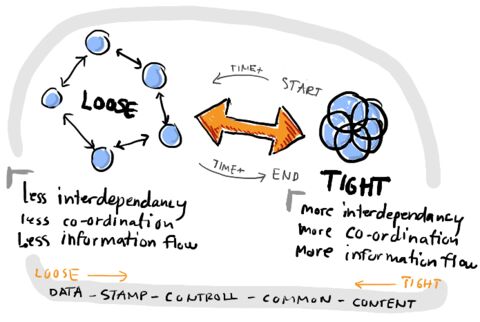 LOOSE
TIME+
START
TIME+
END
TIGHT
less interdependancy
less co-ordination
Less information flow
more interdependancy
more co-ordination
More information flow
LOOSE
TIGHT
DATA - STAMP - CONTROLL - COMMON - CONTENT